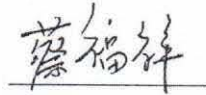 蔡福祥